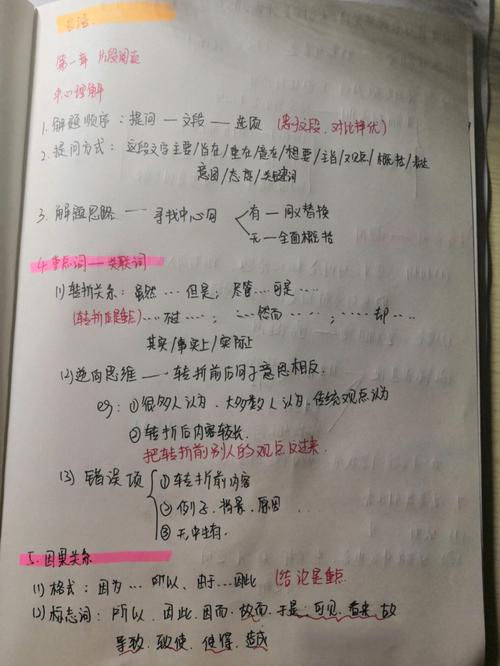 言语
第一章 片段阅读
中心理解
1. 解题顺序：提问—文段—选项（忠于文段、对比择优）
2. 提问方式：这段文字主要/旨在/重在/意在/想要/主旨/观点/概括/表达
意图/态度/关键词
3. 解题思路 —— 寻找中心句
有 — 同义替换
无 — 全面概括
4. 重点词——关联词
(1) 转折关系：虽然…但是；尽管…可是…
(转折后是重点)…不过…；…然而…；…却…
其实/事实上/实际上
(2) 逆向思维 —— 转折前后句子意思相反.
eg：① 很多人认为、大多数人认为、传统观点认为
② 转折后内容较长.
把转折前别人的观点反过来.
(3) 错误项
① 转折前内容
② 例子、背景、原因…
③ 无中生有.
5. 因果关系
(1) 格式：因为…所以、由于…因此 (结论是重点
(2) 标志词：所以、因此、因而、故而、于是、可见、看来、故
导致、致使、使得、造成